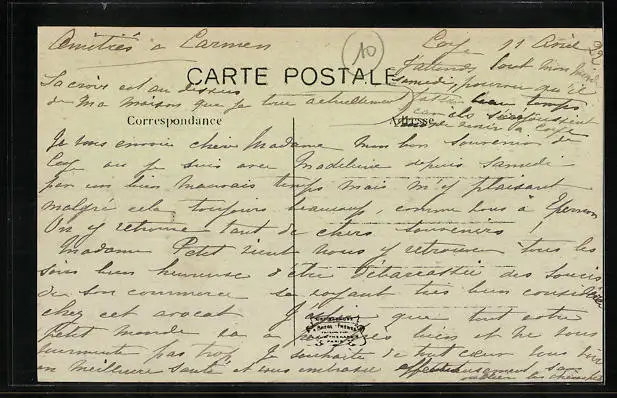 Amitiés à Carmen
Coye 11 Avril 22
10
J'attends tout mon
samedi, pourvu qu'il
CARTE POSTALE
La croix est au dessus
fasse beau temps
de ma maison que je loue actuellement
Correspondance
Adresse
Je vous envoie chère Madame mon bon souvenir de
Coye où je suis avec Madeleine depuis samedi
par un bien mauvais temps mais m'y plaisant
malgré cela toujours beaucoup, comme vous à Epernon
On y retrouve tant de chers souvenirs !
Madame Petit vient nous y retrouver tous les
soirs bien heureuse d'être débarrassée des soucis
de son commerce se voyant très bien
chez cet avocat J' que tout votre
petit monde va à bien et ne vous
tourmente pas trop. Je souhaite de tout cœur vous
en meilleure santé et vous embrasse affectueusement sans
oublier les